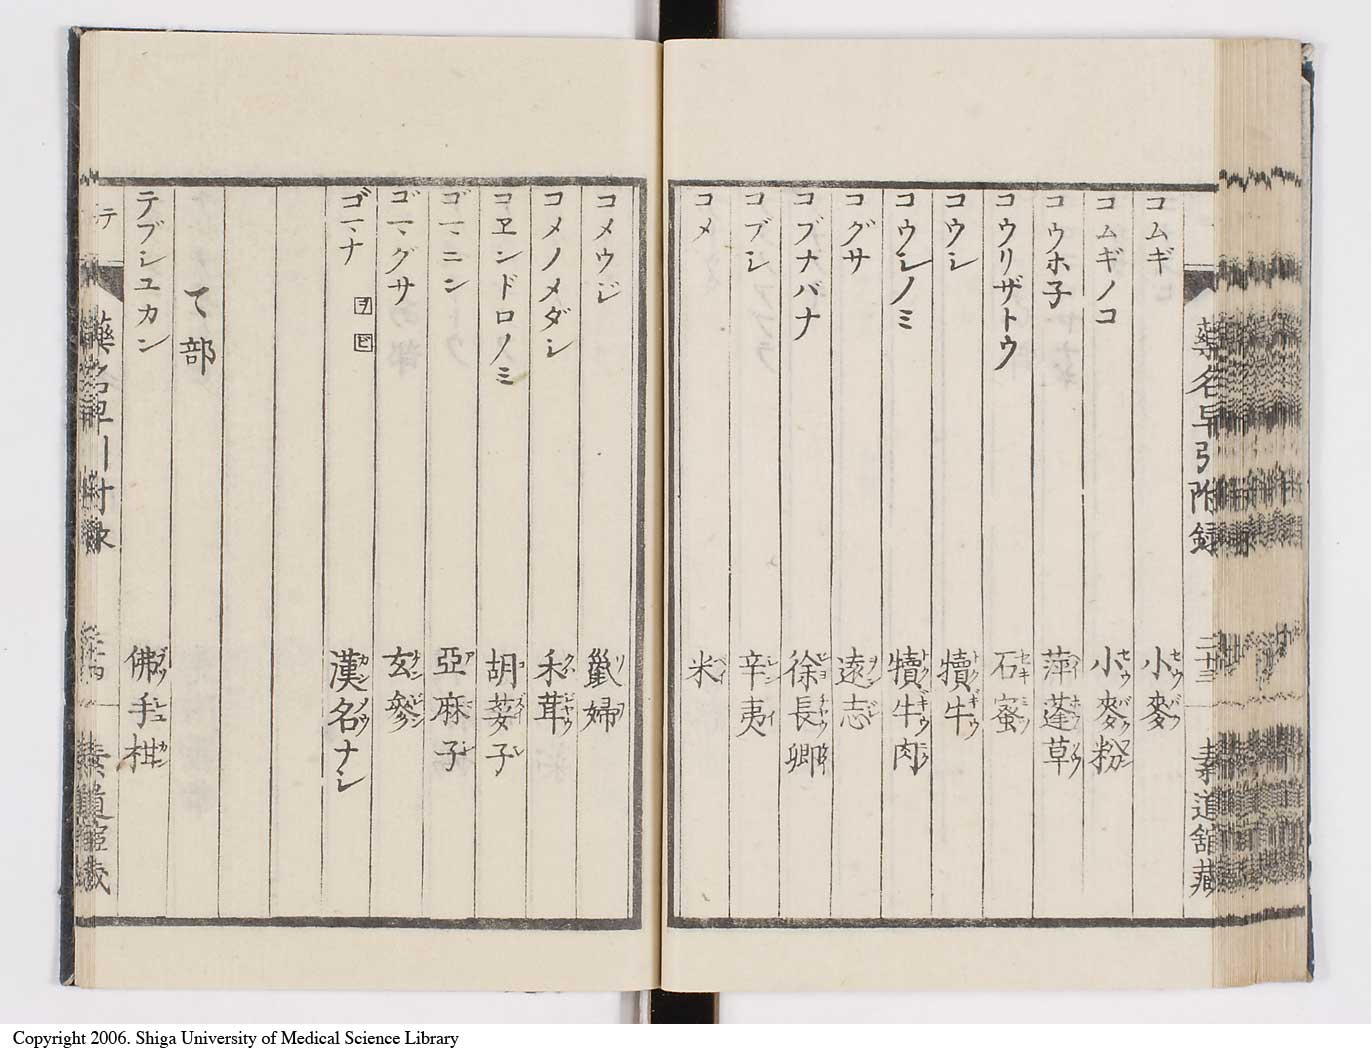 藥名早引附録 二十三 素道舘藏
コムギ 小麥
コムギノコ 小麥粉
コウホ子 萍蓬草
コウリザトウ 石蜜
コウシ 犢牛
コウシノミ 犢牛肉
コグサ 遠志
コブナバナ 徐長卿
コブシ 辛夷
コメ 米
コメウジ 歡婦
コメノメダシ 禾茸
コヱンドロノミ 胡荽子
ゴマニン 亞麻子
ゴマグサ 玄參
ゴマナ 漢名ナシ
て部
テブシユカン 佛手柑
テ
Copyright 2006. Shiga University of Medical Science Library